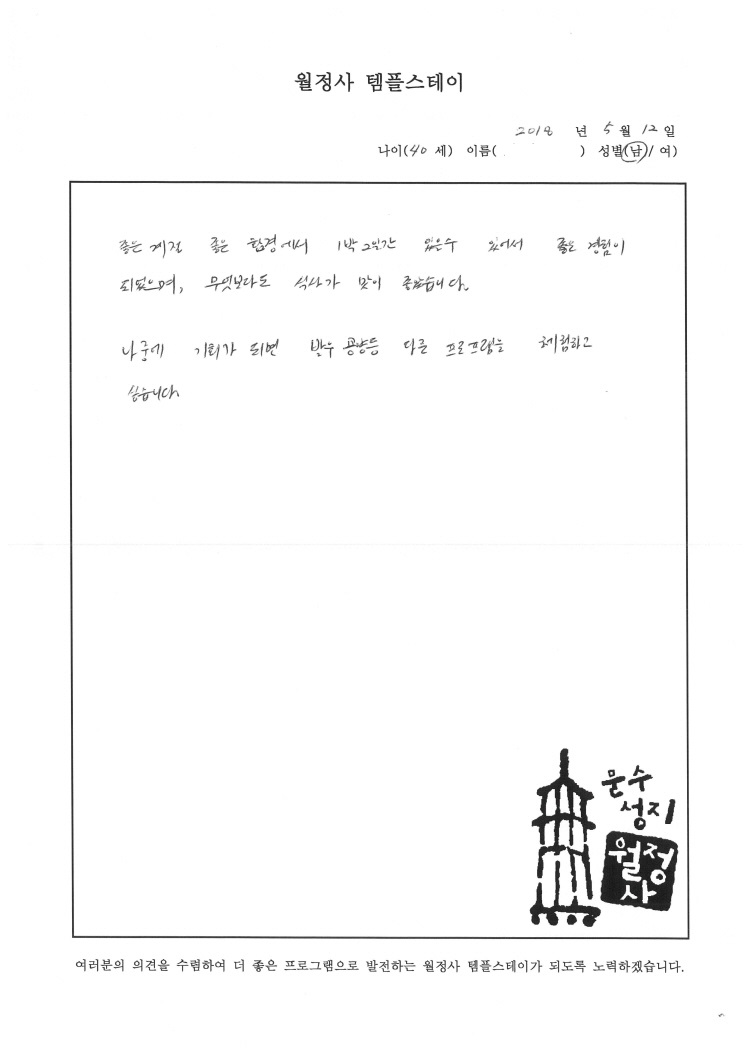 월정사 템플스테이
2018 년 5 월 12 일
나이(40 세) 이름( ) 성별(남/ 여)
좋은 계절 좋은 환경에서 1박 2일간 있을수 있어서 좋은 경험이
되었으며, 무엇보다도 식사가 맛이 좋았습니다.
나중에 기회가 되면 발우 공양등 다른 프로그램을 체험하고
싶습니다.
문수
성지
월정
사
여러분의 의견을 수렴하여 더 좋은 프로그램으로 발전하는 월정사 템플스테이가 되도록 노력하겠습니다.